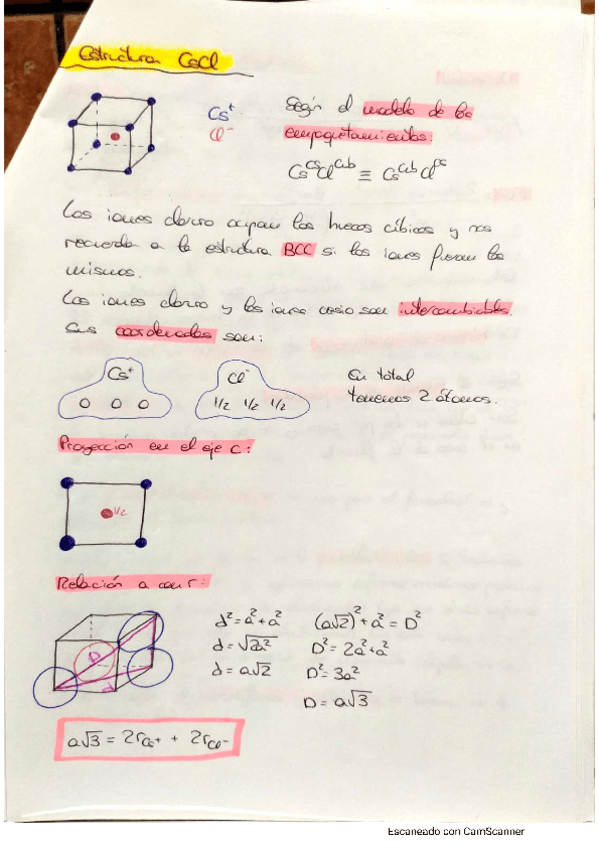 Estructura CsCl
Cs⁺
Cl⁻
Según el modelo de los
empaquetamientos:
Cs^cs Cl^cub ≡ Cs^cub Cl^ps
Los iones cloruro ocupan los huecos cúbicos y nos
recuerda a la estructura BCC si los iones fueran los
mismos.
Los iones cloruro y los iones cesio son intercambiables.
Sus coordenadas son:
Cs⁺
0 0 0
Cl⁻
1/2 1/2 1/2
En total
tenemos 2 átomos.
Proyección en el eje c:
1/2
Relación a con r:
D
d
d² = a² + a²
d = √2a²
d = a√2
(a√2)² + a² = D²
D² = 2a² + a²
D² = 3a²
D = a√3
a√3 = 2rCs⁺ + 2rCl⁻
Escaneado con CamScanner